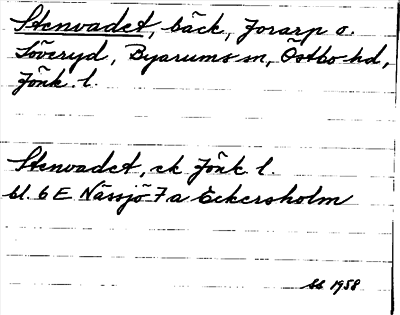 Stenvadet, bäck, Jorarp o.
Löveryd, Byarums sn, Östbo hd,
Jönk. l.
Stenvadet, ek Jönk. l.
bl. 6 E Nässjö 7 a Eckersholm
1958